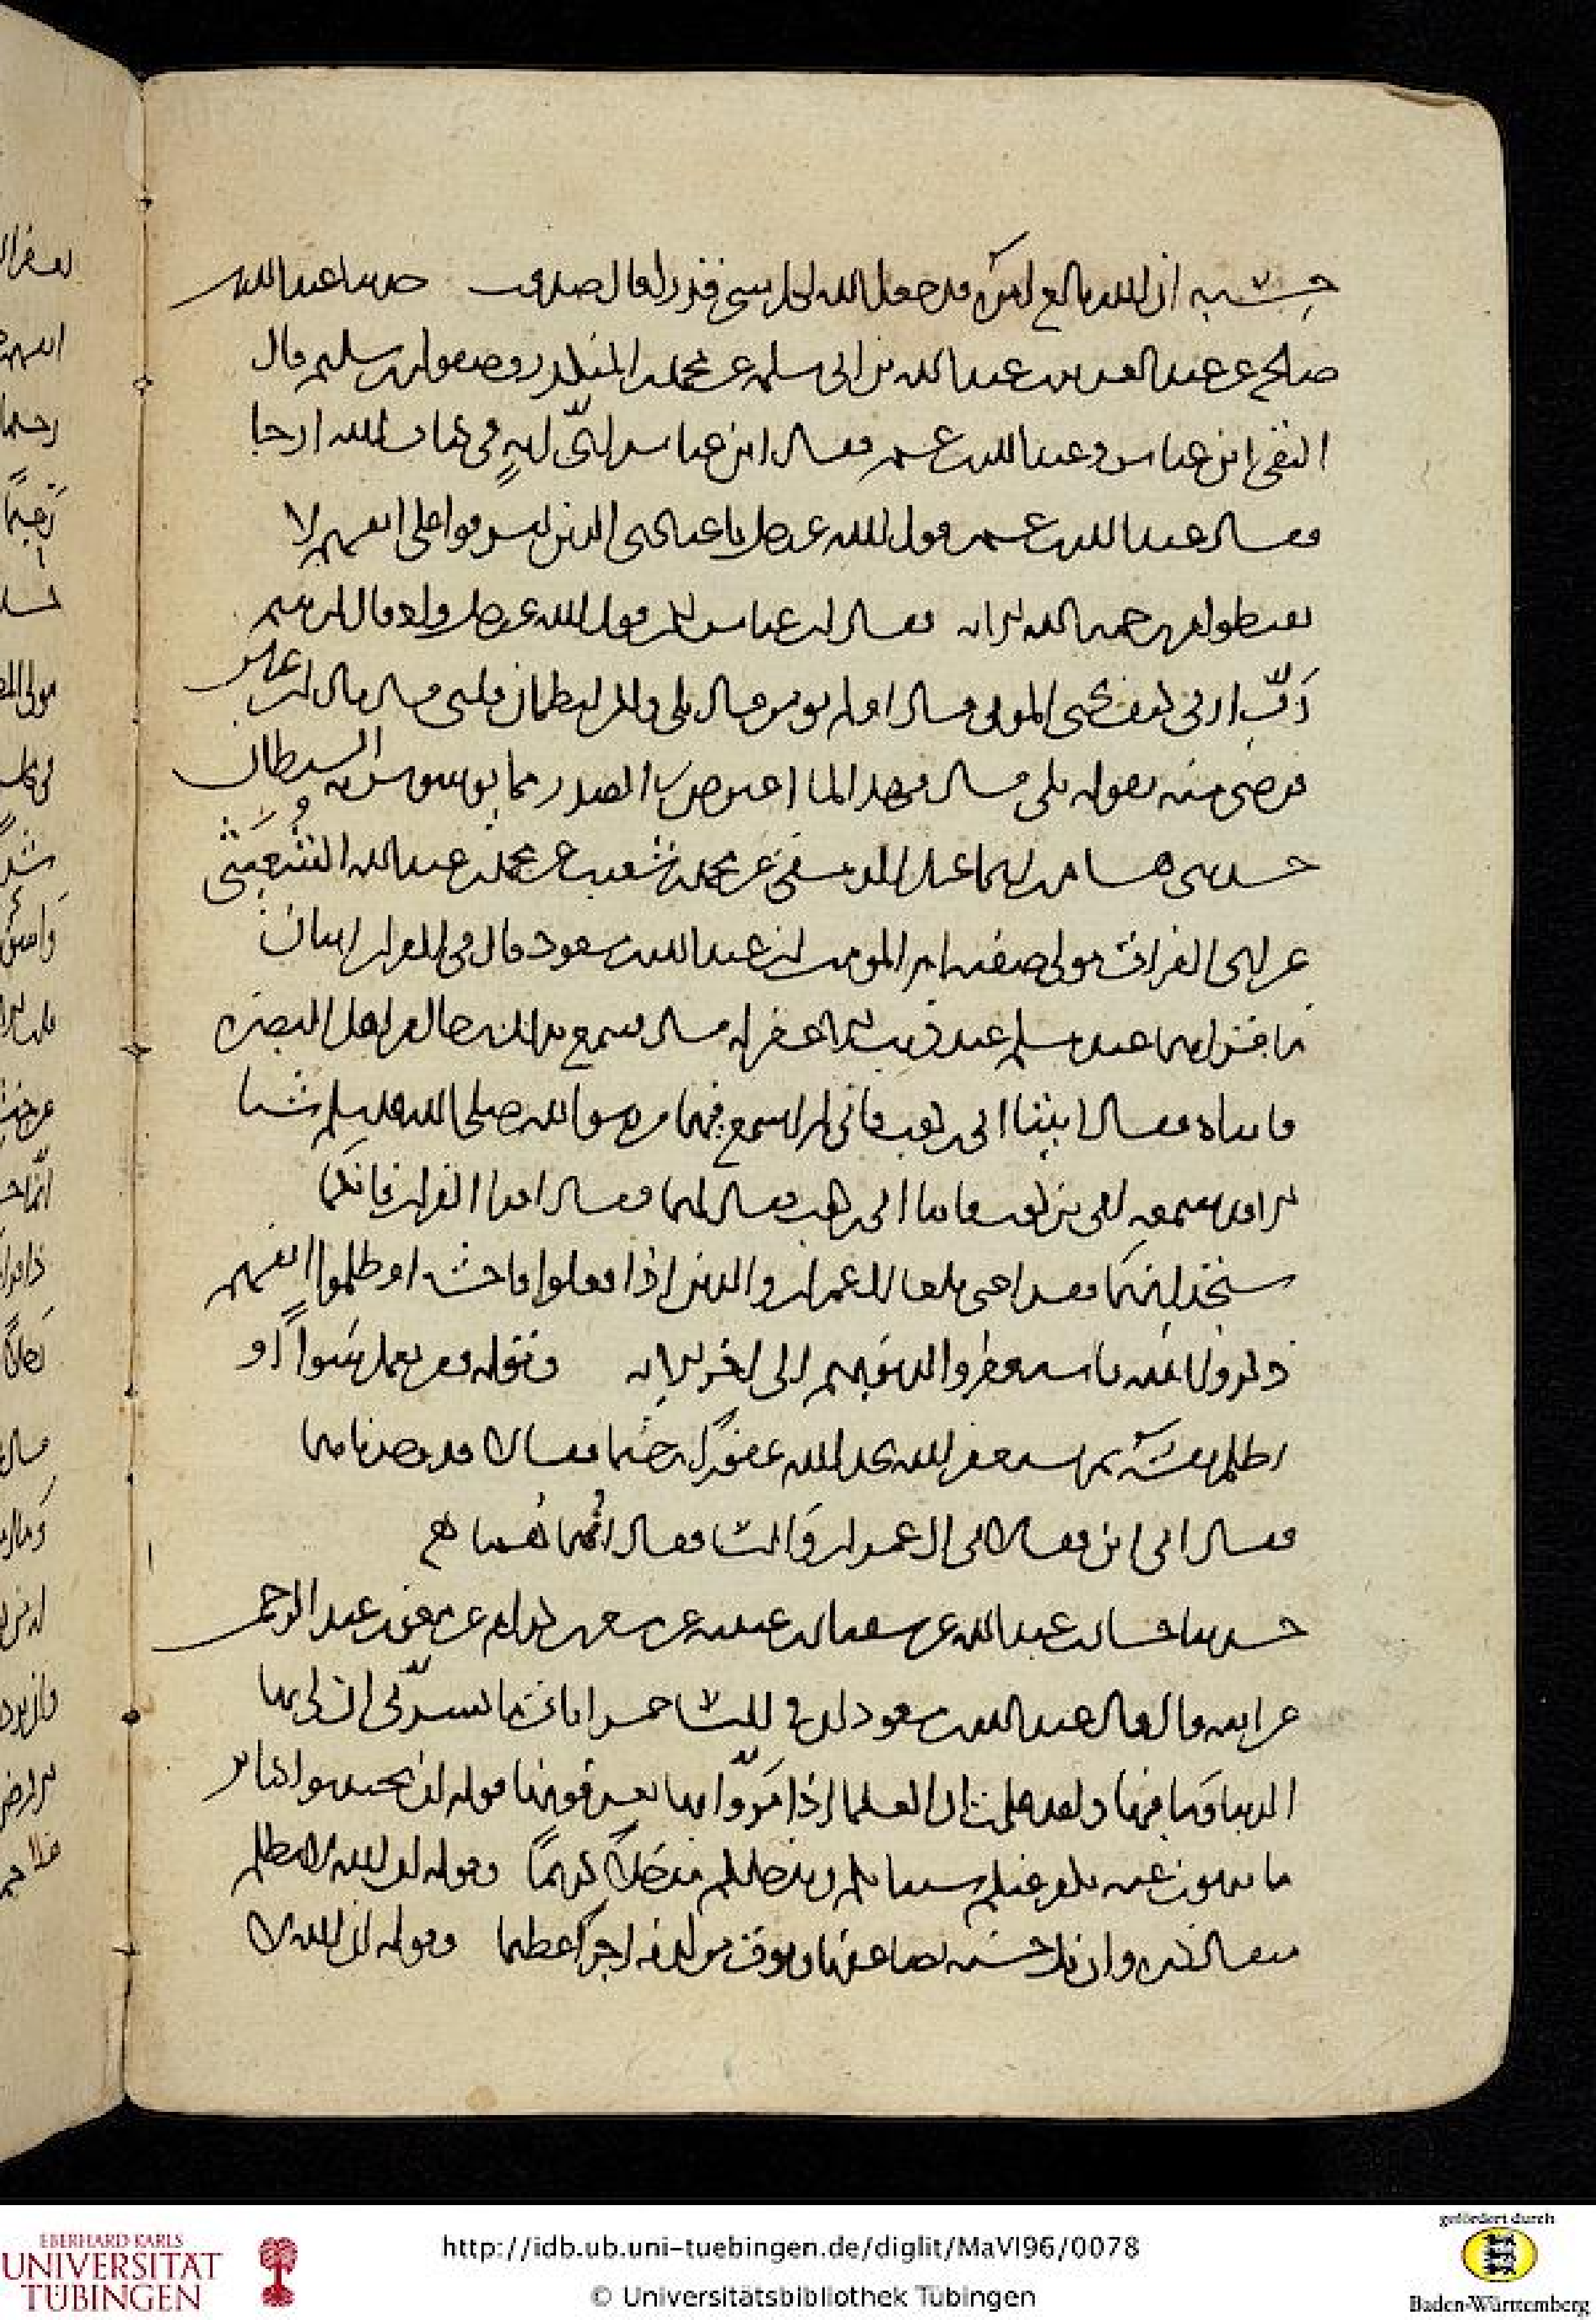 حسبه ان الله بالغ امره قد جعل الله لكل شي قدرا قال صدقت حدثنا عبد الله بن
صالح عن عبد العزيز بن عبد الله بن ابي سلمه عن محمد بن المنكدر وصفوان بن سليم قال
التقى ابن عباس وعبد الله بن عمر فقال ابن عباس اي ايه في كتاب الله ارجا
فقال عبد الله بن عمر قول الله عز وجل يا عبادي الذين اسرفوا على انفسهم لا
تقنطوا من رحمة الله الايه فقال ابن عباس لكن قول الله عز وجل واذ قال ابرهيم
رَبّ ارني كيف تحي الموتى قال اولم تومن قال بلى ولكن ليطمئن قلبي قال قال ابن عباس
فرضي منه بقوله بلى قال فهذا لما اعترض في الصدر مما يوسوس به الشيطان
حدثني هشام بن اسماعيل الدمشقي عن محمد بن شعيب عن محمد بن عبد الله الشُعَيثي
عن ابي الفرات مولى صفيه ام المومنين ان عبد الله بن مسعود قال في القران ايتان
ما قراهما عبد مسلم عند ذنب الا غفر له قال فسمع بذلك رجلان من اهل البصره
فاتياه فقال ايتيا ابي بن كعب فاني لم اسمع فيهما من رسول الله صلى الله عليه وسلم شيا
الا وقد سمعه ابي بن كعب فاتيا ابي بن كعب فقال لهما فقال اقرا القران فانكما
ستجدانهما فقرا حتى بلغا ال عمران والذين اذا فعلوا فاحشه او ظلموا انفسهم
ذكروا الله فاستغفروا لذنوبهم الى اخر الايه وقوله ومن يعمل سُوءًا او
يظلم نفسه ثم يستغفر الله يجد الله غفورًا رحيما فقالا قد وجدناهما
فقال ابي اين فقالا في ال عمران والنسا فقال انُّهما هُما هما
حدثنا حسان بن عبد الله عن سفيان بن عيينه عن مسعر بن كدام عن معن بن عبد الرحمن
عن ابيه قال قال عبد الله بن مسعود ان في النسا خمس ايات ما يسرّني ان لي بها
الدنيا وَما فيها ولقد علمت ان العلما اذا مَرّوا بها يعرفونها قوله ان تجتنبوا كبائر
ما تنهون عنه نكفر عنكم سيياتكم وندخلكم مدخلًا كريمًا وقوله ان الله لا يظلم
مثقال ذره وان تك حسنه يضاعفها ويوت من لدنه اجرًا عظيما وقوله ان الله لا
EBERHARD KARLS
UNIVERSITÄT
TÜBINGEN
http://idb.ub.uni-tuebingen.de/diglit/MaVI96/0078
© Universitätsbibliothek Tübingen
gefördert durch
Baden-Württemberg